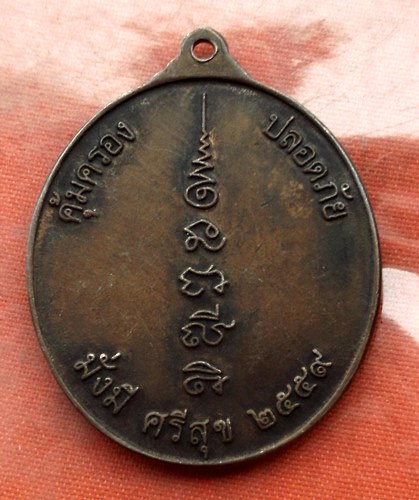 คุ้มครอง
ปลอดภัย
มั่งมี ศรีสุข ๒๕๕๙